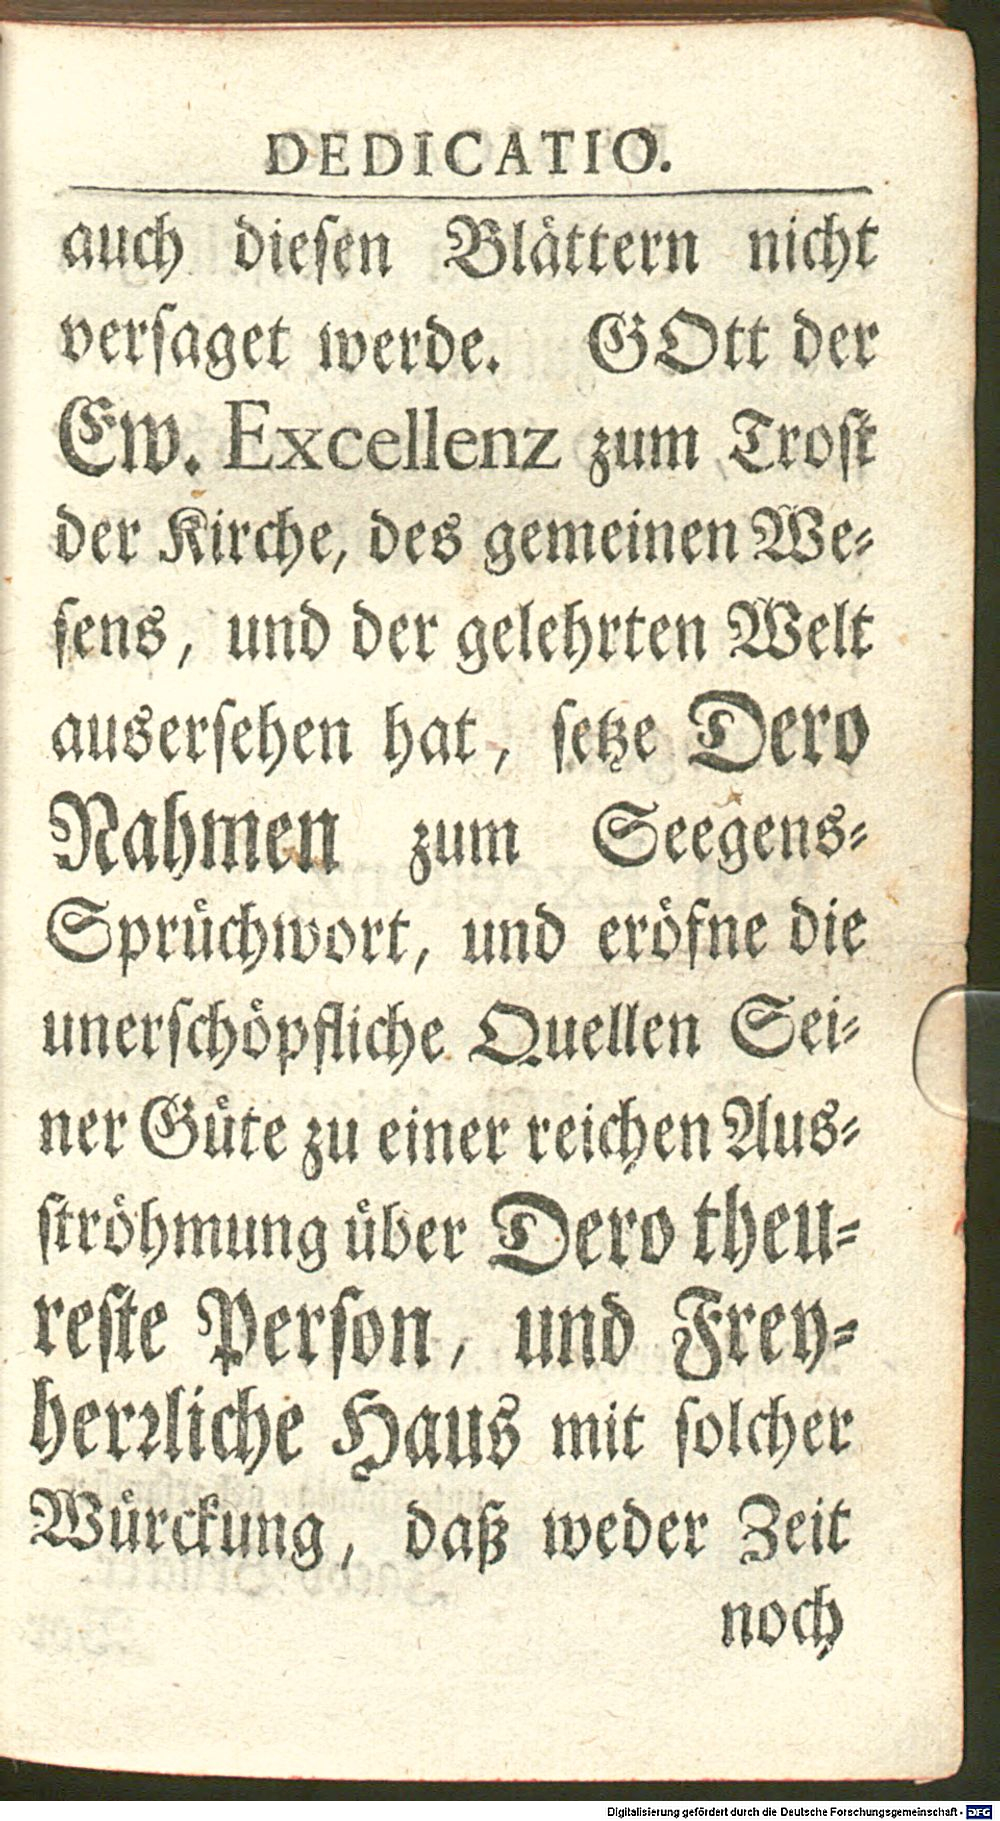 DEDICATIO.
auch dieſen Blaͤttern nicht
verſaget werde. GOtt der
Ew. Excellenz zum Troſt
der Kirche, des gemeinen We⸗
ſens, und der gelehrten Welt
auserſehen hat, ſetze Dero
Nahmen zum Seegens⸗
Spruͤchwort, und eroͤfne die
unerſchoͤpfliche Quellen Sei⸗
ner Guͤte zu einer reichen Aus⸗
ſtroͤhmung uͤber Dero theu⸗
reſte Perſon, und Frey⸗
herꝛliche Haus mit ſolcher
Wuͤrckung, daß weder Zeit
noch
Digitalisierung gefördert durch die Deutsche Forschungsgemeinschaft - DFG